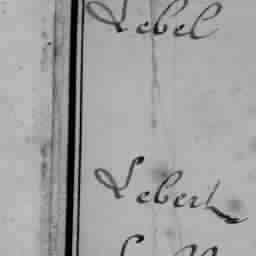 Lebel
Lebert